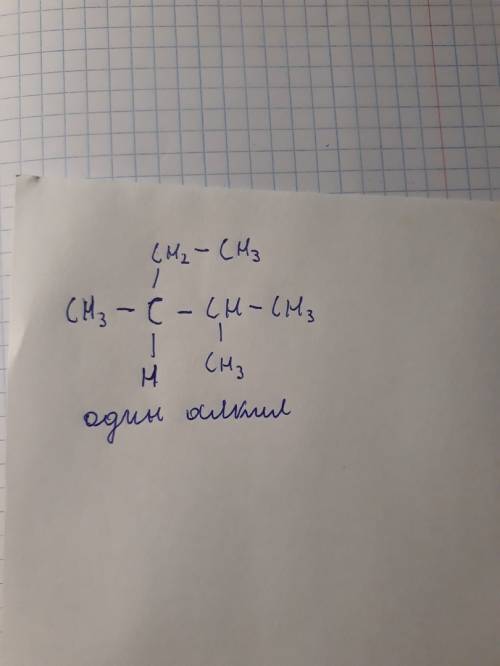 CH₂ – CH₃
CH₃ – C – CH – CH₃
H CH₃
один алкил